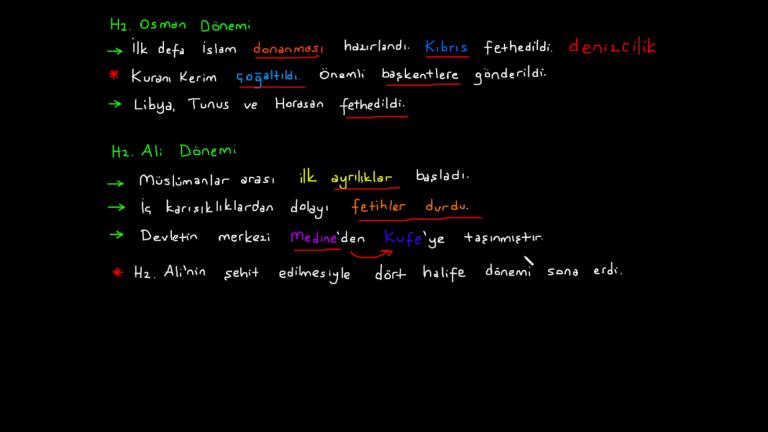 Hz. Osman Dönemi
→ İlk defa İslam donanması hazırlandı. Kıbrıs fethedildi. denizcilik
* Kuranı Kerim çoğaltıldı. Önemli başkentlere gönderildi.
→ Libya, Tunus ve Horasan fethedildi.
Hz. Ali Dönemi
→ Müslümanlar arası ilk ayrılıklar başladı.
→ İç karışıklıklardan dolayı fetihler durdu.
→ Devletin merkezi Medine'den Kufe'ye taşınmıştır.
* Hz. Ali'nin şehit edilmesiyle dört halife dönemi sona erdi.